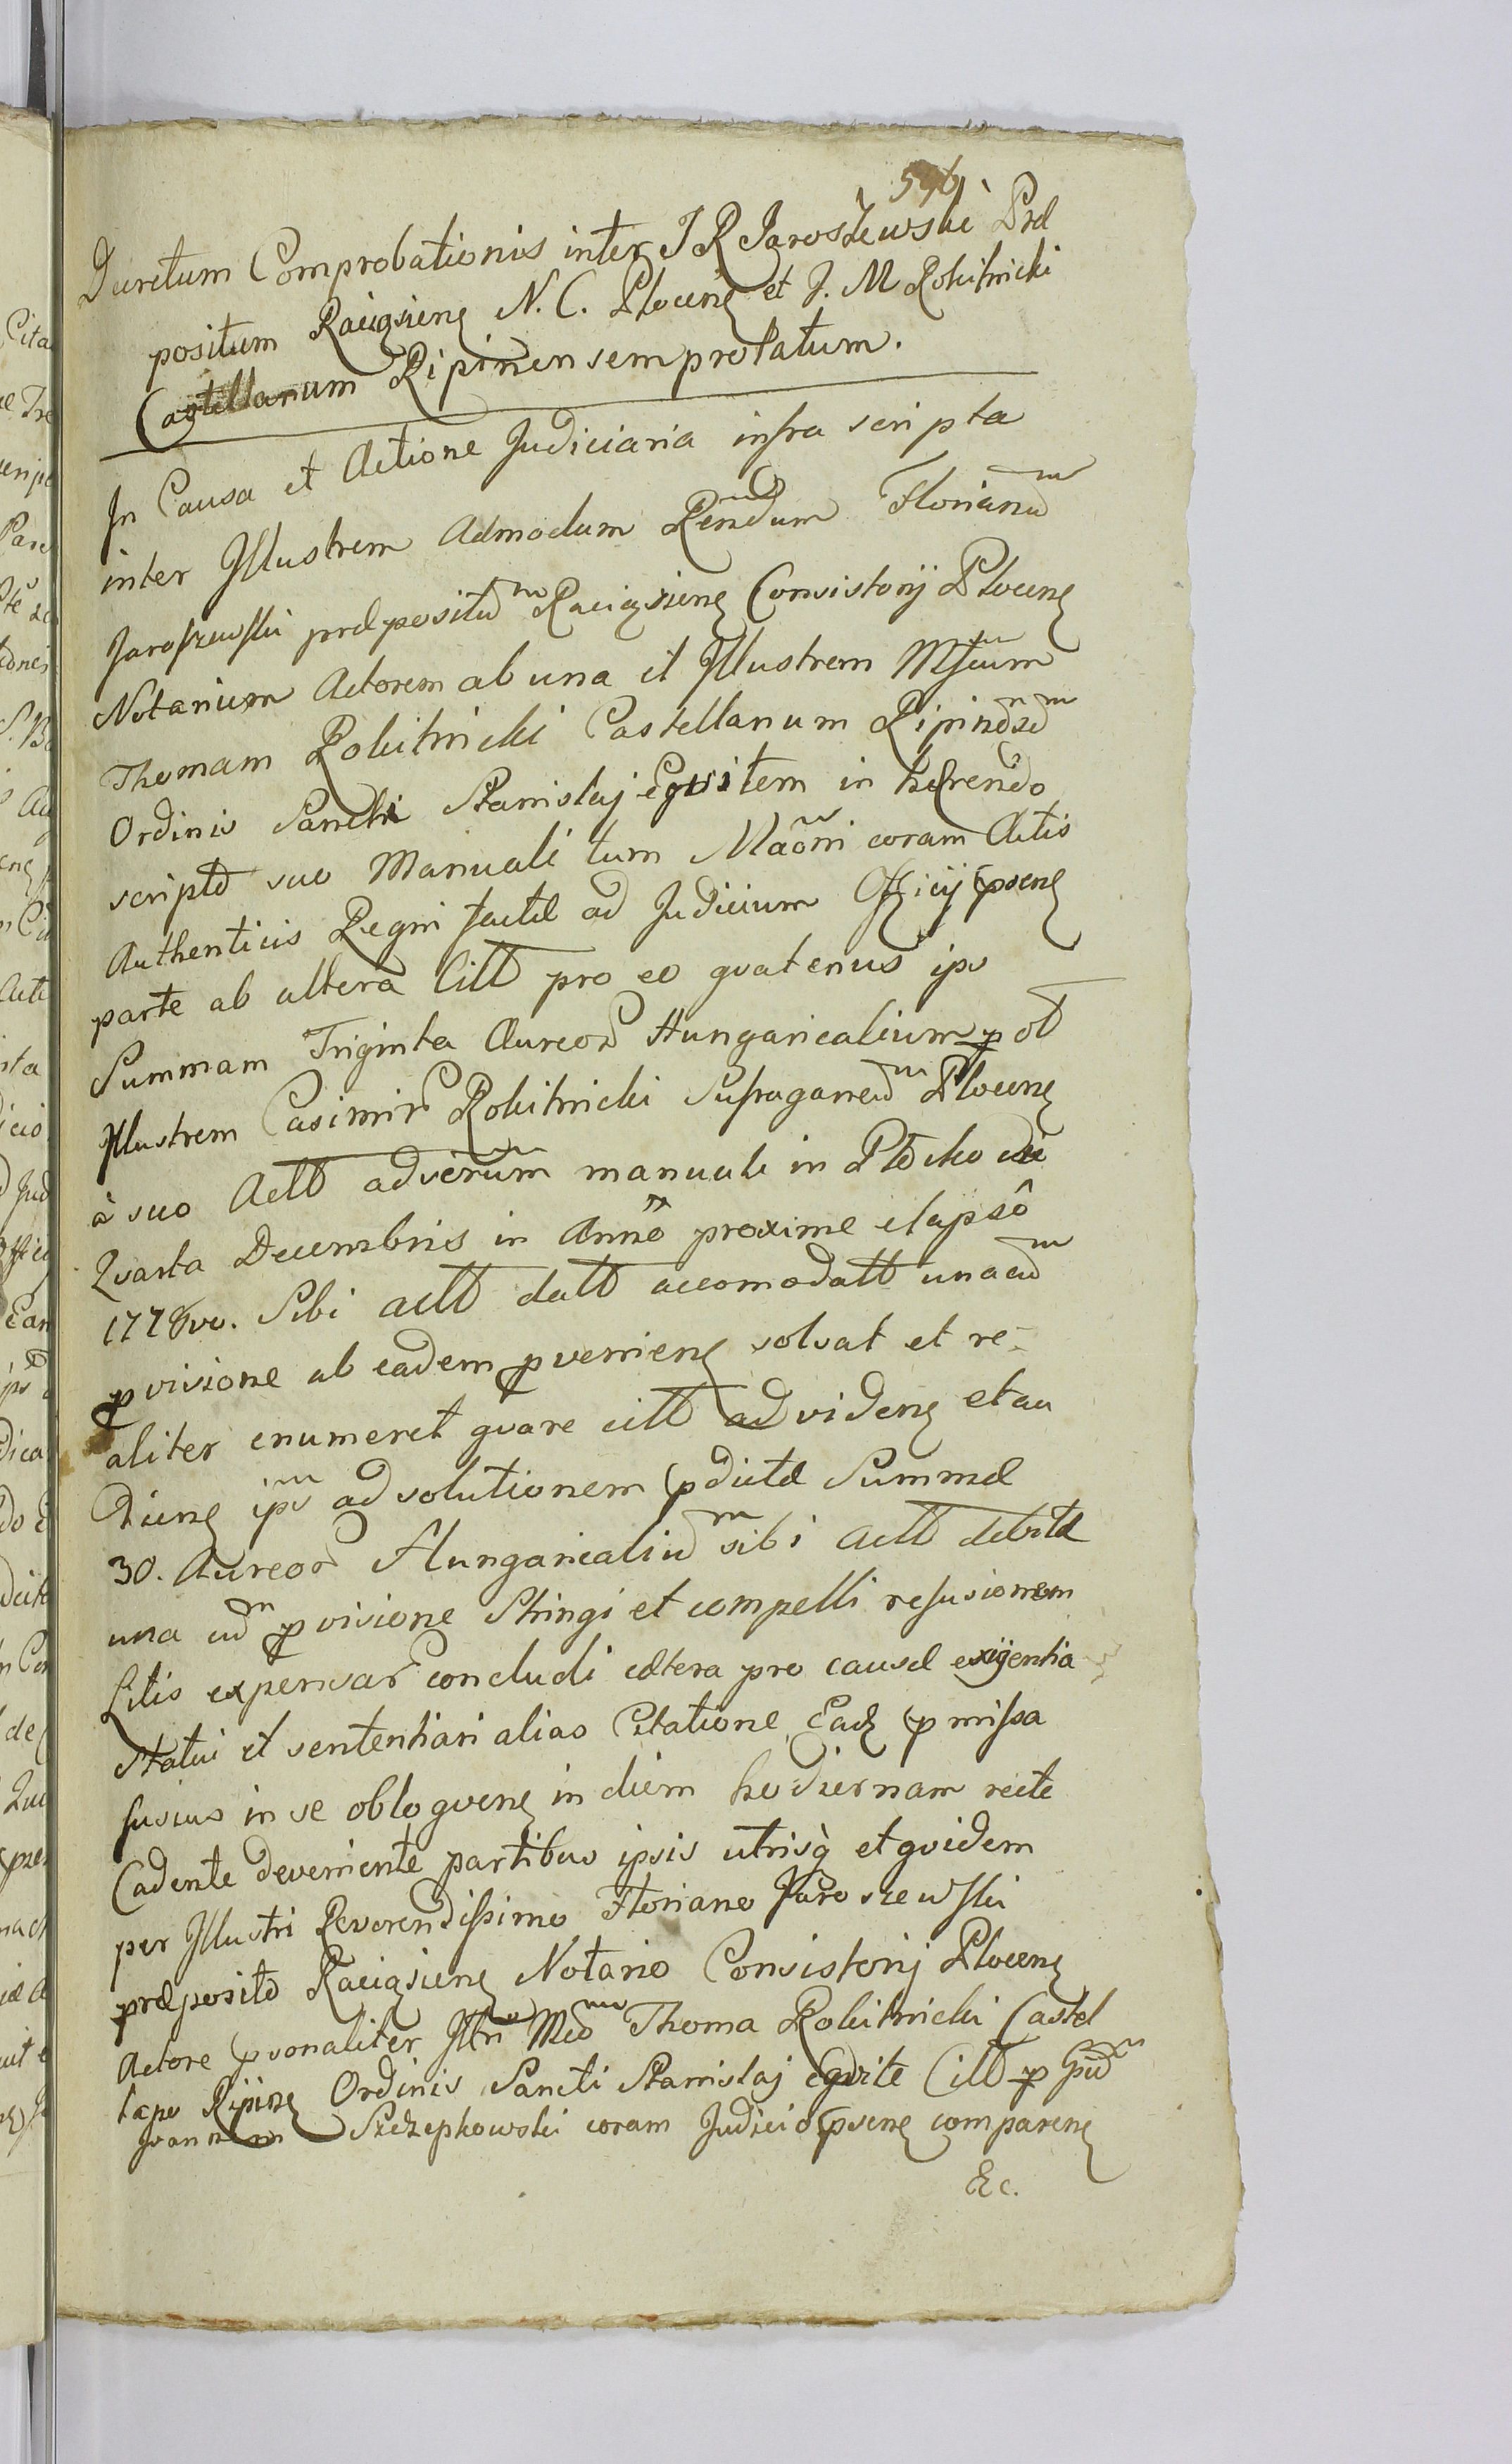 596
Decretum Comprobationis inter J R Jaroszewski Præ
positum Raciąsieng N. C. Ploceng et J. M Rokitnicki
Castellanum Ripinensem prolatum.
In Causa et Actione Judiciaria infra scripta
inter Jllustrem Admodum Rendum Florianum
Jaroszewski præpositum Raciąsieng Consistorij Ploceng
Notarium Actorem ab una et Jllustrem Mfcum
Thomam Rokitnicki Castellanum Ripinensem
Ordinis Sancti Stanislaj Equitem in hærendo
scripto suo Manuali tum Maoni coram Actis
Authenticis Regni factæ ad Judicium Officij pseng
parte ab altera Citt pro eo quatenus ips
Summam Triginta Aureor Hungaricalium p ol
Jllustrem Casimir Rokitnicki Sufraganeum Ploceng
à suo Actt adverum manuale in Plocko die
Quarta Decembris in Anno proxime elapsô
1778vo. Sibi actt datt accomodatt unacum
pvisione ab eadem pvenieng solvat et re-
aliter enumeret quare citt ad videng et au
dieng ips ad solutionem pdictæ Summæ
30. Aureor Hungaricalium sibi Actt debitæ
una cum pvisione Stringi et compelli refusionem
Litis expensar concludi cætera pro causæ exigentia
Statui et sententiari alias Citatione Eadq pmissa
fusius in se obloqueng in diem hodiernam recte
Cadente deveniente partibus ipsis utrisq et quidem
per Jllustri Reverendissimo Floriano Jaroszewski
præposito Raciąsieng Notario Consistorij Ploceng
Actore psonaliter Jllri Mco Thoma Rokitnicki Castel
lano Ripineng Ordinis Sancti Stanislaj Equite Citt p Gsum
Joannem Szczepkowski coram Judicio pseng compareng
Ec.